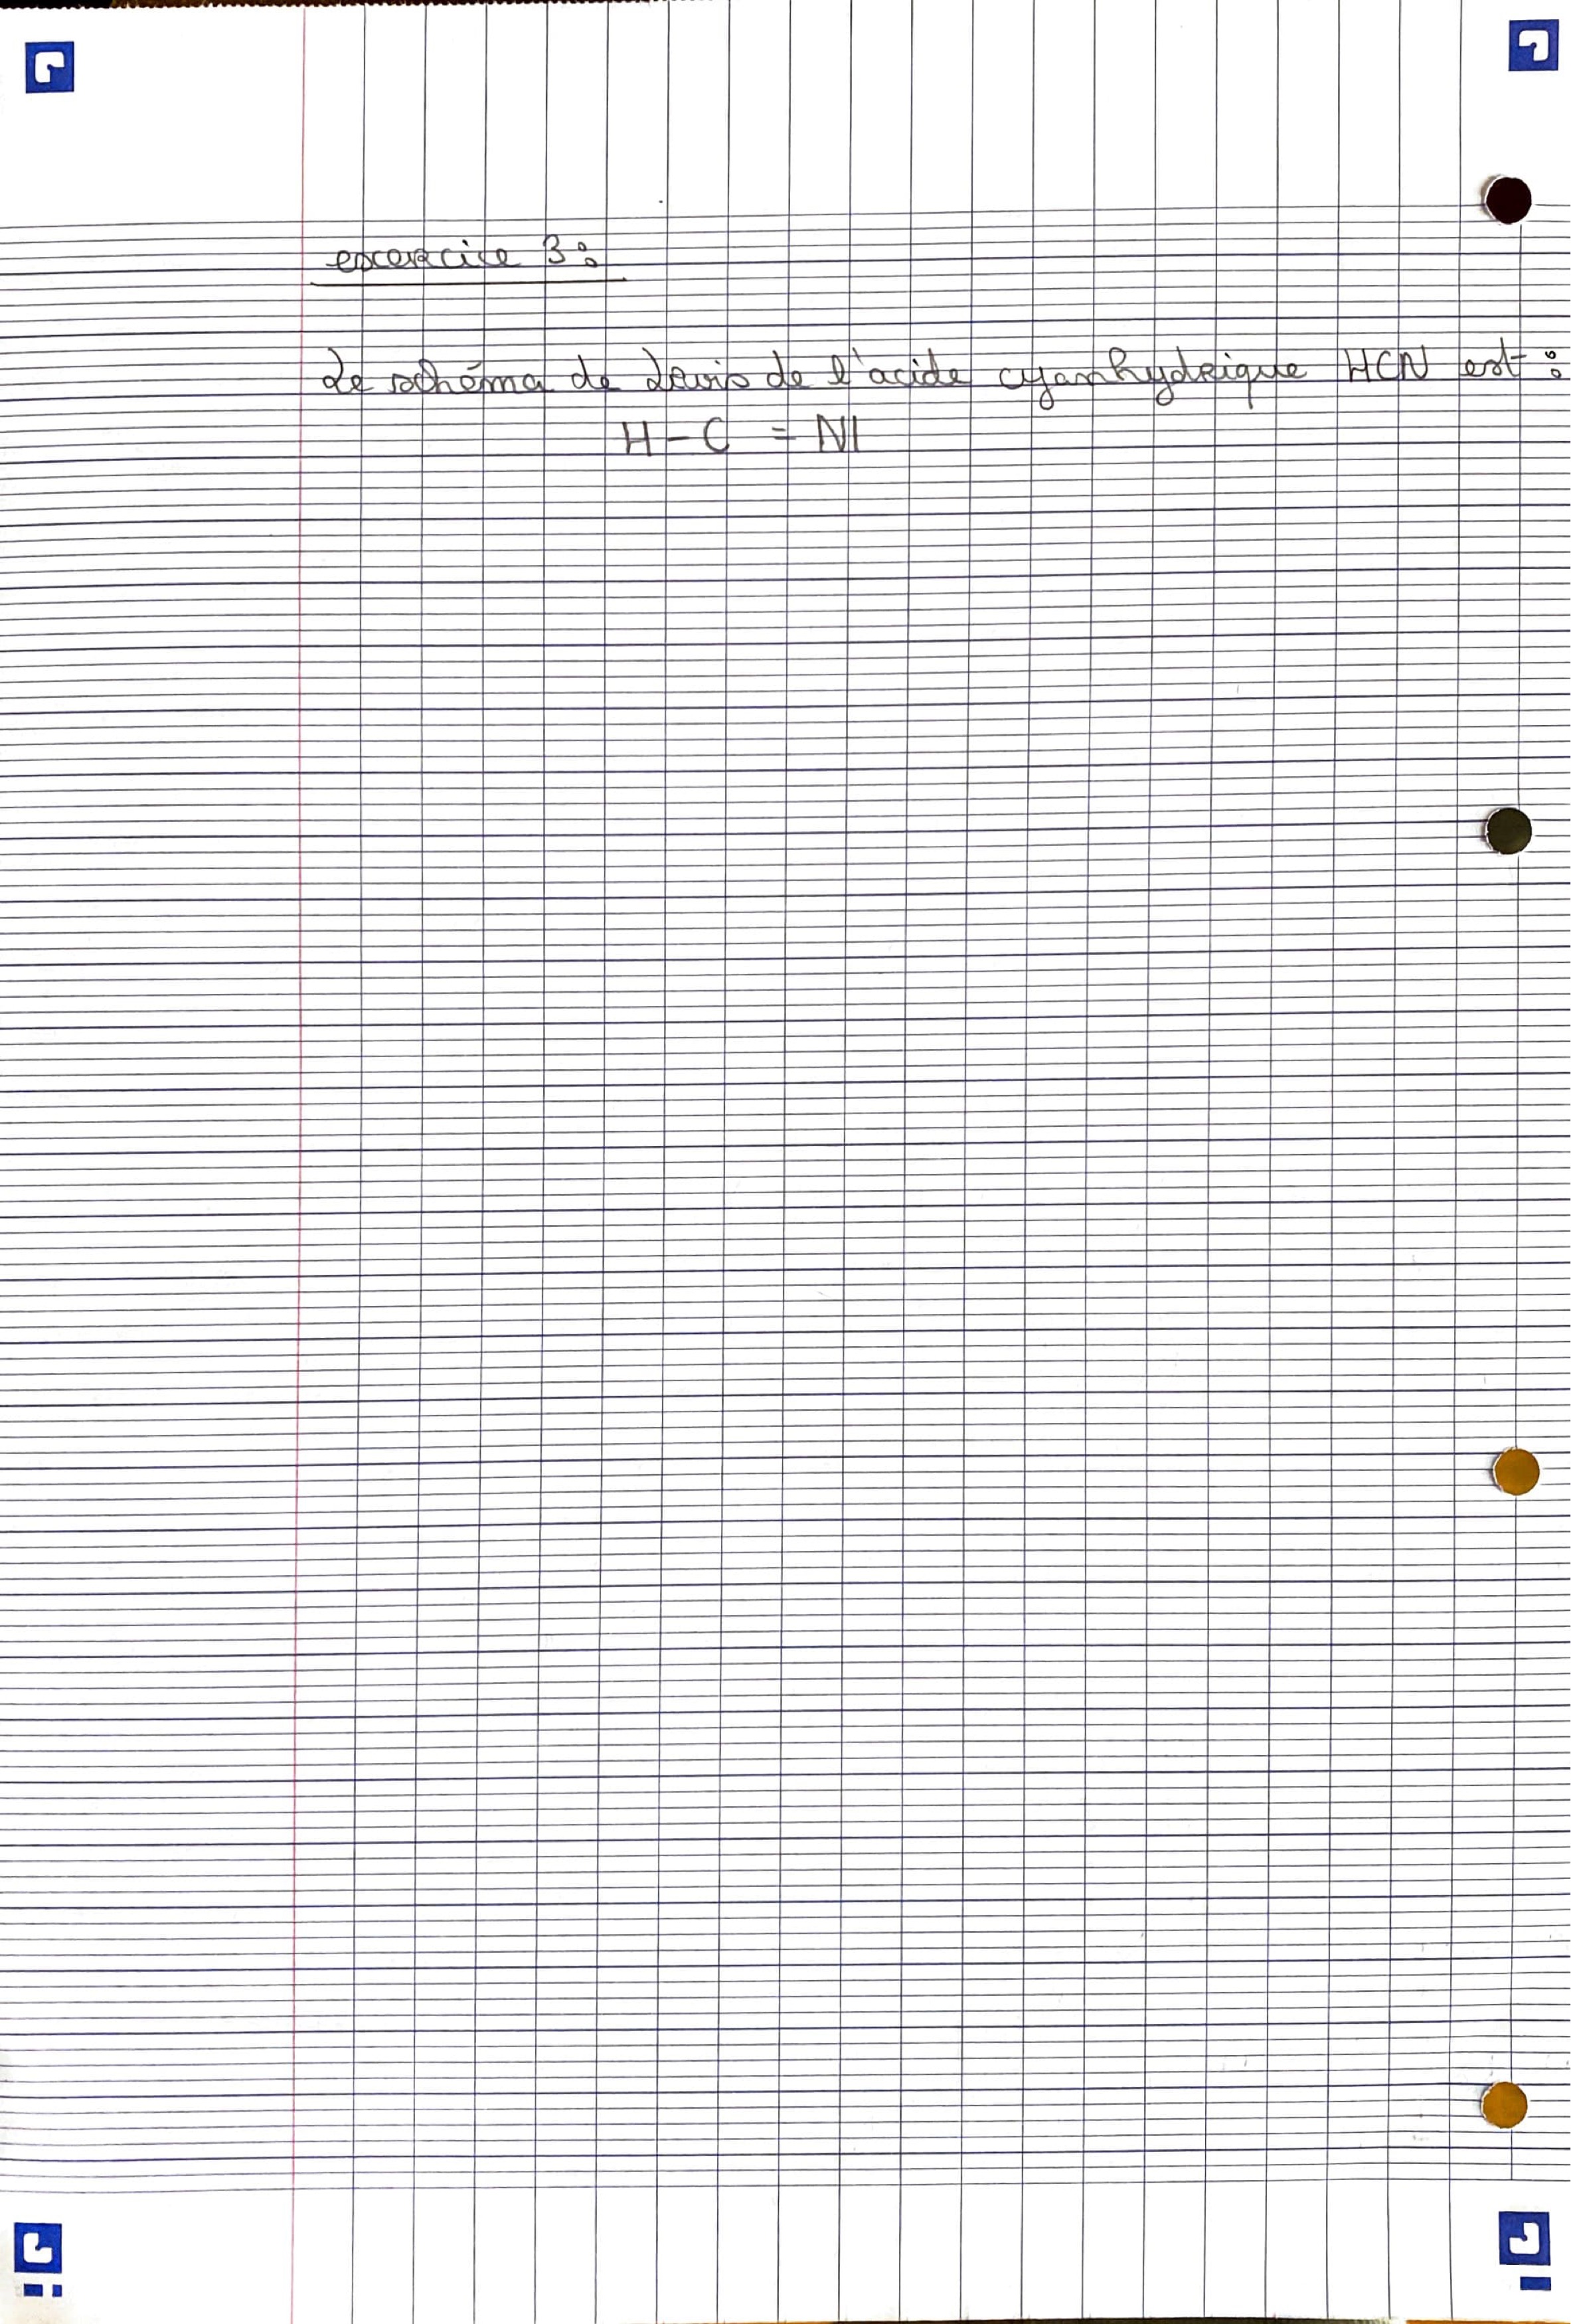 excercice 3:
Le schéma de Lewis de l'acide cyanhydrique HCN est :
H - C = N|